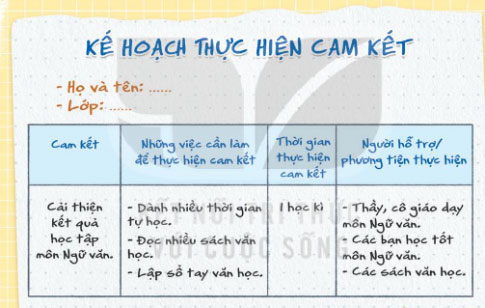 KẾ HOẠCH THỰC HIỆN CAM KẾT
- Họ và tên: ......
- Lớp: ......
Cam kết
Những việc cần làm
để thực hiện cam kết
Thời gian
thực hiện
cam kết
Người hỗ trợ/
phương tiện thực hiện
Cải thiện
kết quả
học tập
môn Ngữ văn.
- Dành nhiều thời gian
tự học.
- Đọc nhiều sách văn
học.
- Lập sổ tay văn học.
1 học kì
- Thầy, cô giáo dạy
môn Ngữ văn.
- Các bạn học tốt
môn Ngữ văn.
- Các sách văn học.
KẾT NỐI TRI THỨC
VỚI CUỘC SỐNG